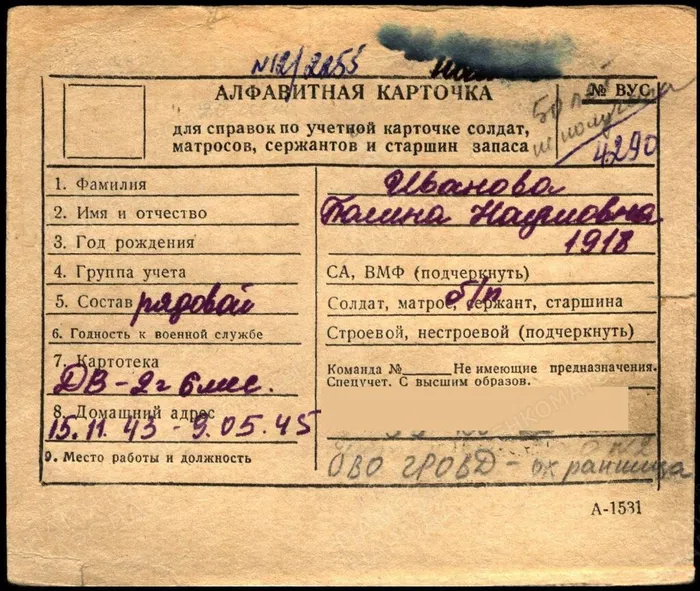 №12/2255
АЛФАВИТНАЯ КАРТОЧКА
№ ВУС
для справок по учетной карточке солдат,
матросов, сержантов и старшин запаса
50 лет
не получала
4290
1. Фамилия
Иванова
2. Имя и отчество
Галина Наумовна
3. Год рождения
1918
4. Группа учета
СА, ВМФ (подчеркнуть)
5. Состав рядовой
б/п
Солдат, матрос, сержант, старшина
6. Годность к военной службе
Строевой, нестроевой (подчеркнуть)
7. Картотека
ДВ - 2 г 6 мес.
Команда № Не имеющие предназначения.
Спецучет. С высшим образов.
8. Домашний адрес
15.11.43 - 9.05.45
9. Место работы и должность
ОВО ГРОВД - охранница
№2
А-1531